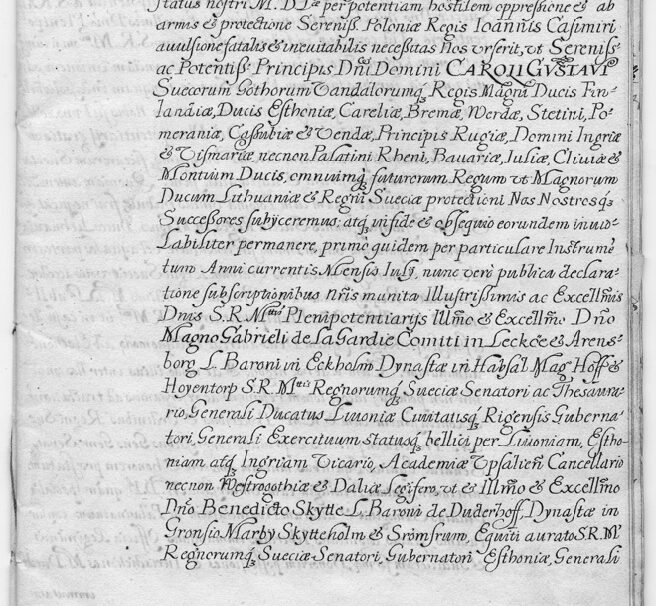 Status nostri M. D. Lae per potentiam hostilem oppressione & ab
armis & protectione Sereniss. Poloniæ Regis Ioannis Casimiri
avulsione fatalis & inevitabilis necessitas Nos urserit, ut Sereniss.
ac Potentiss. Principis Dnī Domini CAROLI GVSTAVI
Suecorum Gothorum Vandalorumq; Regis Magni Ducis Fin-
landiæ, Ducis Esthoniæ, Careliæ, Bremæ, Werdæ, Stetini, Po-
meraniæ, Cassubiæ & Vendæ, Principis Rugiæ, Domini Ingriæ
& Vismariæ, necnon Palatini Rheni, Bavariæ, Iuliæ, Cliviæ &
Montium Ducis, omniumq; futurorum Regum ut Magnorum
Ducum Lithuaniæ & Regni Sueciæ protectioni Nos Nostrosq;
Successores subijceremus, atq; in fide & obsequio eorundem invio-
labiliter permanere, primo quidem per particulare Instrumē-
tum Anni currentis Mensis Iulij, nunc verò publica declara-
tione subscriptionibus nr̄is munita Illustrissimis ac Excellmis
Dnis S. R. Mtis Plenipotentiarijs Illmo & Excellmo Dn̄o
Magno Gabrieli de La Gardie Comiti in Lecköe & Arens-
borg L. Baroni in Eckholm Dynastæ in Habsal Mag Hoff &
Hoyentorp S. R. Mtis Regnorumq; Sueciæ Senatori ac Thesaura-
rio, Generali Ducatus Livoniæ Civitatisq; Rigensis Guberna-
tori, Generali Exercituum statusq; bellici per Livoniam, Estho-
niam atq; Ingriam Vicario, Academiæ Vpsalien̄ Cancellario
necnon Westrogothiæ & Daliæ Legifero, ut & Illmo & Excellmo
Dn̄o Benedicto Skytte L. Baroni de Duderhoff, Dynastæ in
Gronsio Marby Skytteholm & Srömsrum, Equiti aurato S. R. Mtis
Regnorumq; Sueciæ Senatori, Gubernatori Esthoniæ, Generali